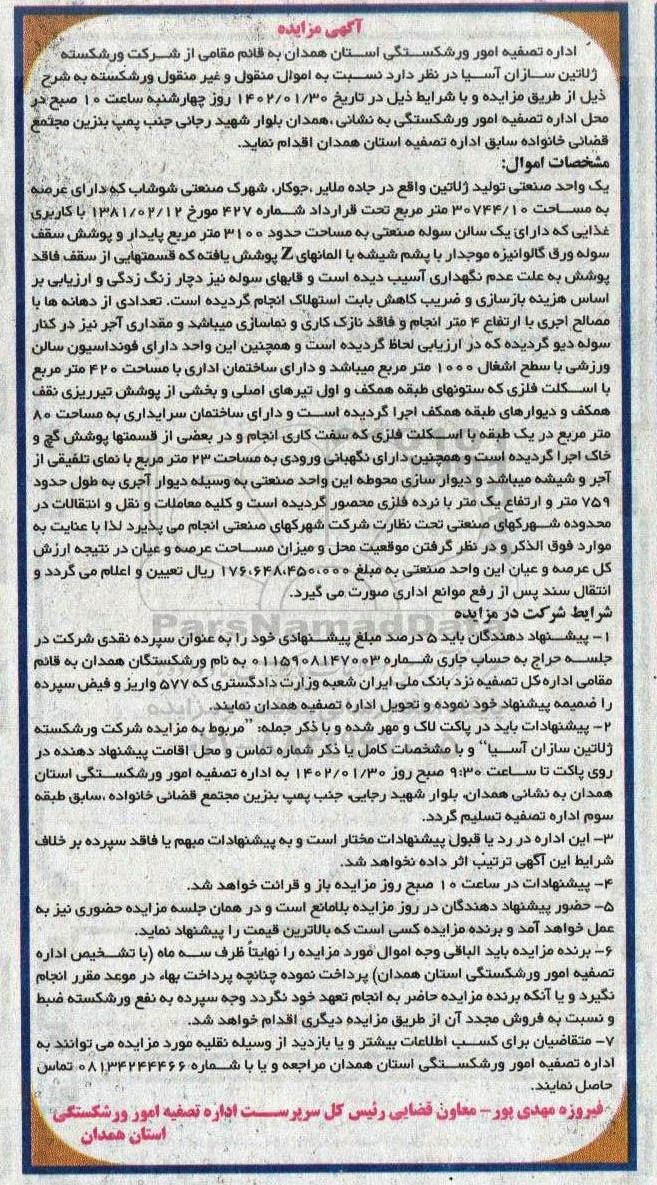 آگهی مزایده
اداره تصفیه امور ورشکستگی استان همدان به قائم مقامی از شرکت ورشکسته
ژلاتین سازان آسیا در نظر دارد نسبت به اموال منقول و غیر منقول ورشکسته به شرح
ذیل از طریق مزایده و با شرایط ذیل در تاریخ ۱۴۰۲/۰۱/۳۰ روز چهارشنبه ساعت ۱۰ صبح در
محل اداره تصفیه امور ورشکستگی به نشانی ،همدان بلوار شهید رجائی جنب پمپ بنزین مجتمع
قضائی خانواده سابق اداره تصفیه استان همدان اقدام نماید.
مشخصات اموال:
یک واحد صنعتی تولید ژلاتین واقع در جاده ملایر ،جوکار، شهرک صنعتی شوشاب که دارای عرصه
به مساحت ۳۰۷۴۴/۱۰ متر مربع تحت قرارداد شماره ۴۲۷ مورخ ۱۳۸۱/۰۲/۱۲ با کاربری
غذایی که دارای یک سالن سوله صنعتی به مساحت حدود ۳۱۰۰ متر مربع پایدار و پوشش سقف
سوله ورق گالوانیزه موجدار با پشم شیشه با المانهای Z پوشش یافته که قسمتهایی از سقف فاقد
پوشش به علت عدم نگهداری آسیب دیده است و قابهای سوله نیز دچار زنگ زدگی و ارزیابی بر
اساس هزینه بازسازی و ضریب کاهش بابت استهلاک انجام گردیده است. تعدادی از دهانه ها با
مصالح اجری با ارتفاع ۴ متر انجام و فاقد نازک کاری و نماسازی میباشد و مقداری آجر نیز در کنار
سوله دپو گردیده که در ارزیابی لحاظ گردیده است و همچنین این واحد دارای فونداسیون سالن
ورزشی با سطح اشغال ۱۰۰۰ متر مربع میباشد و دارای ساختمان اداری با مساحت ۴۲۰ متر مربع
با اسکلت فلزی که ستونهای طبقه همکف و اول تیرهای اصلی و بخشی از پوشش تیرریزی نقف
همکف و دیوارهای طبقه همکف اجرا گردیده است و دارای ساختمان سرایداری به مساحت ۸۰
متر مربع در یک طبقه با اسکلت فلزی که سفت کاری انجام و در بعضی از قسمتها پوشش گچ و
خاک اجرا گردیده است و همچنین دارای نگهبانی ورودی به مساحت ۲۳ متر مربع با نمای تلفیقی از
آجر و شیشه میباشد و دیوار سازی محوطه این واحد صنعتی به وسیله دیوار آجری به طول حدود
۷۵۹ متر و ارتفاع یک متر با نرده فلزی محصور گردیده است و کلیه معاملات و نقل و انتقالات در
محدوده شهرکهای صنعتی تحت نظارت شرکت شهرکهای صنعتی انجام می پذیرد لذا با عنایت به
موارد فوق الذکر و در نظر گرفتن موقعیت محل و میزان مساحت عرصه و عیان در نتیجه ارزش
کل عرصه و عیان این واحد صنعتی به مبلغ ۱۷۶،۶۴۸،۴۵۰،۰۰۰ ریال تعیین و اعلام می گردد و
انتقال سند پس از رفع موانع اداری صورت می گیرد.
شرایط شرکت در مزایده
ParsNamadData
۱- پیشنهاد دهندگان باید ۵ درصد مبلغ پیشنهادی خود را به عنوان سپرده نقدی شرکت در
جلسه حراج به حساب جاری شماره ۰۱۱۵۹۰۸۱۴۷۰۰۳ به نام ورشکستگان همدان به قائم
مقامی اداره کل تصفیه نزد بانک ملی ایران شعبه وزارت دادگستری کد ۵۷۷ واریز و فیض سپرده
را ضمیمه پیشنهاد خود نموده و تحویل اداره تصفیه همدان نمایند.
۲- پیشنهادات باید در پاکت لاک و مهر شده و با ذکر جمله: "مربوط به مزایده شرکت ورشکسته
ژلاتین سازان آسیا" و با مشخصات کامل یا ذکر شماره تماس و محل اقامت پیشنهاد دهنده در
روی پاکت تا ساعت ۹:۳۰ صبح روز ۱۴۰۲/۰۱/۳۰ به اداره تصفیه امور ورشکستگی استان
همدان به نشانی همدان، بلوار شهید رجایی، جنب پمپ بنزین مجتمع قضائی خانواده ،سابق طبقه
سوم اداره تصفیه تسلیم گردد.
۳- این اداره در رد یا قبول پیشنهادات مختار است و به پیشنهادات مبهم یا فاقد سپرده بر خلاف
شرایط این آگهی ترتیب اثر داده نخواهد شد.
۴- پیشنهادات در ساعت ۱۰ صبح روز مزایده باز و قرائت خواهد شد.
۵- حضور پیشنهاد دهندگان در روز مزایده بلامانع است و در همان جلسه مزایده حضوری نیز به
عمل خواهد آمد و برنده مزایده کسی است که بالاترین قیمت را پیشنهاد نماید.
۶- برنده مزایده باید الباقی وجه اموال مورد مزایده را نهایتاً ظرف سه ماه (با تشخیص اداره
تصفیه امور ورشکستگی استان همدان) پرداخت نموده چنانچه پرداخت بهاء در موعد مقرر انجام
نگیرد و یا آنکه برنده مزایده حاضر به انجام تعهد خود نگردد وجه سپرده به نفع ورشکسته ضبط
و نسبت به فروش مجدد آن از طریق مزایده دیگری اقدام خواهد شد.
۷- متقاضیان برای کسب اطلاعات بیشتر و یا بازدید از وسیله نقلیه مورد مزایده می توانند به
اداره تصفیه امور ورشکستگی استان همدان مراجعه و یا با شماره ۰۸۱۳۴۲۴۴۴۶۶ تماس
حاصل نمایند.
فیروزه مهدی پور- معاون قضایی رئیس کل سرپرست اداره تصفیه امور ورشکستگی
استان همدان